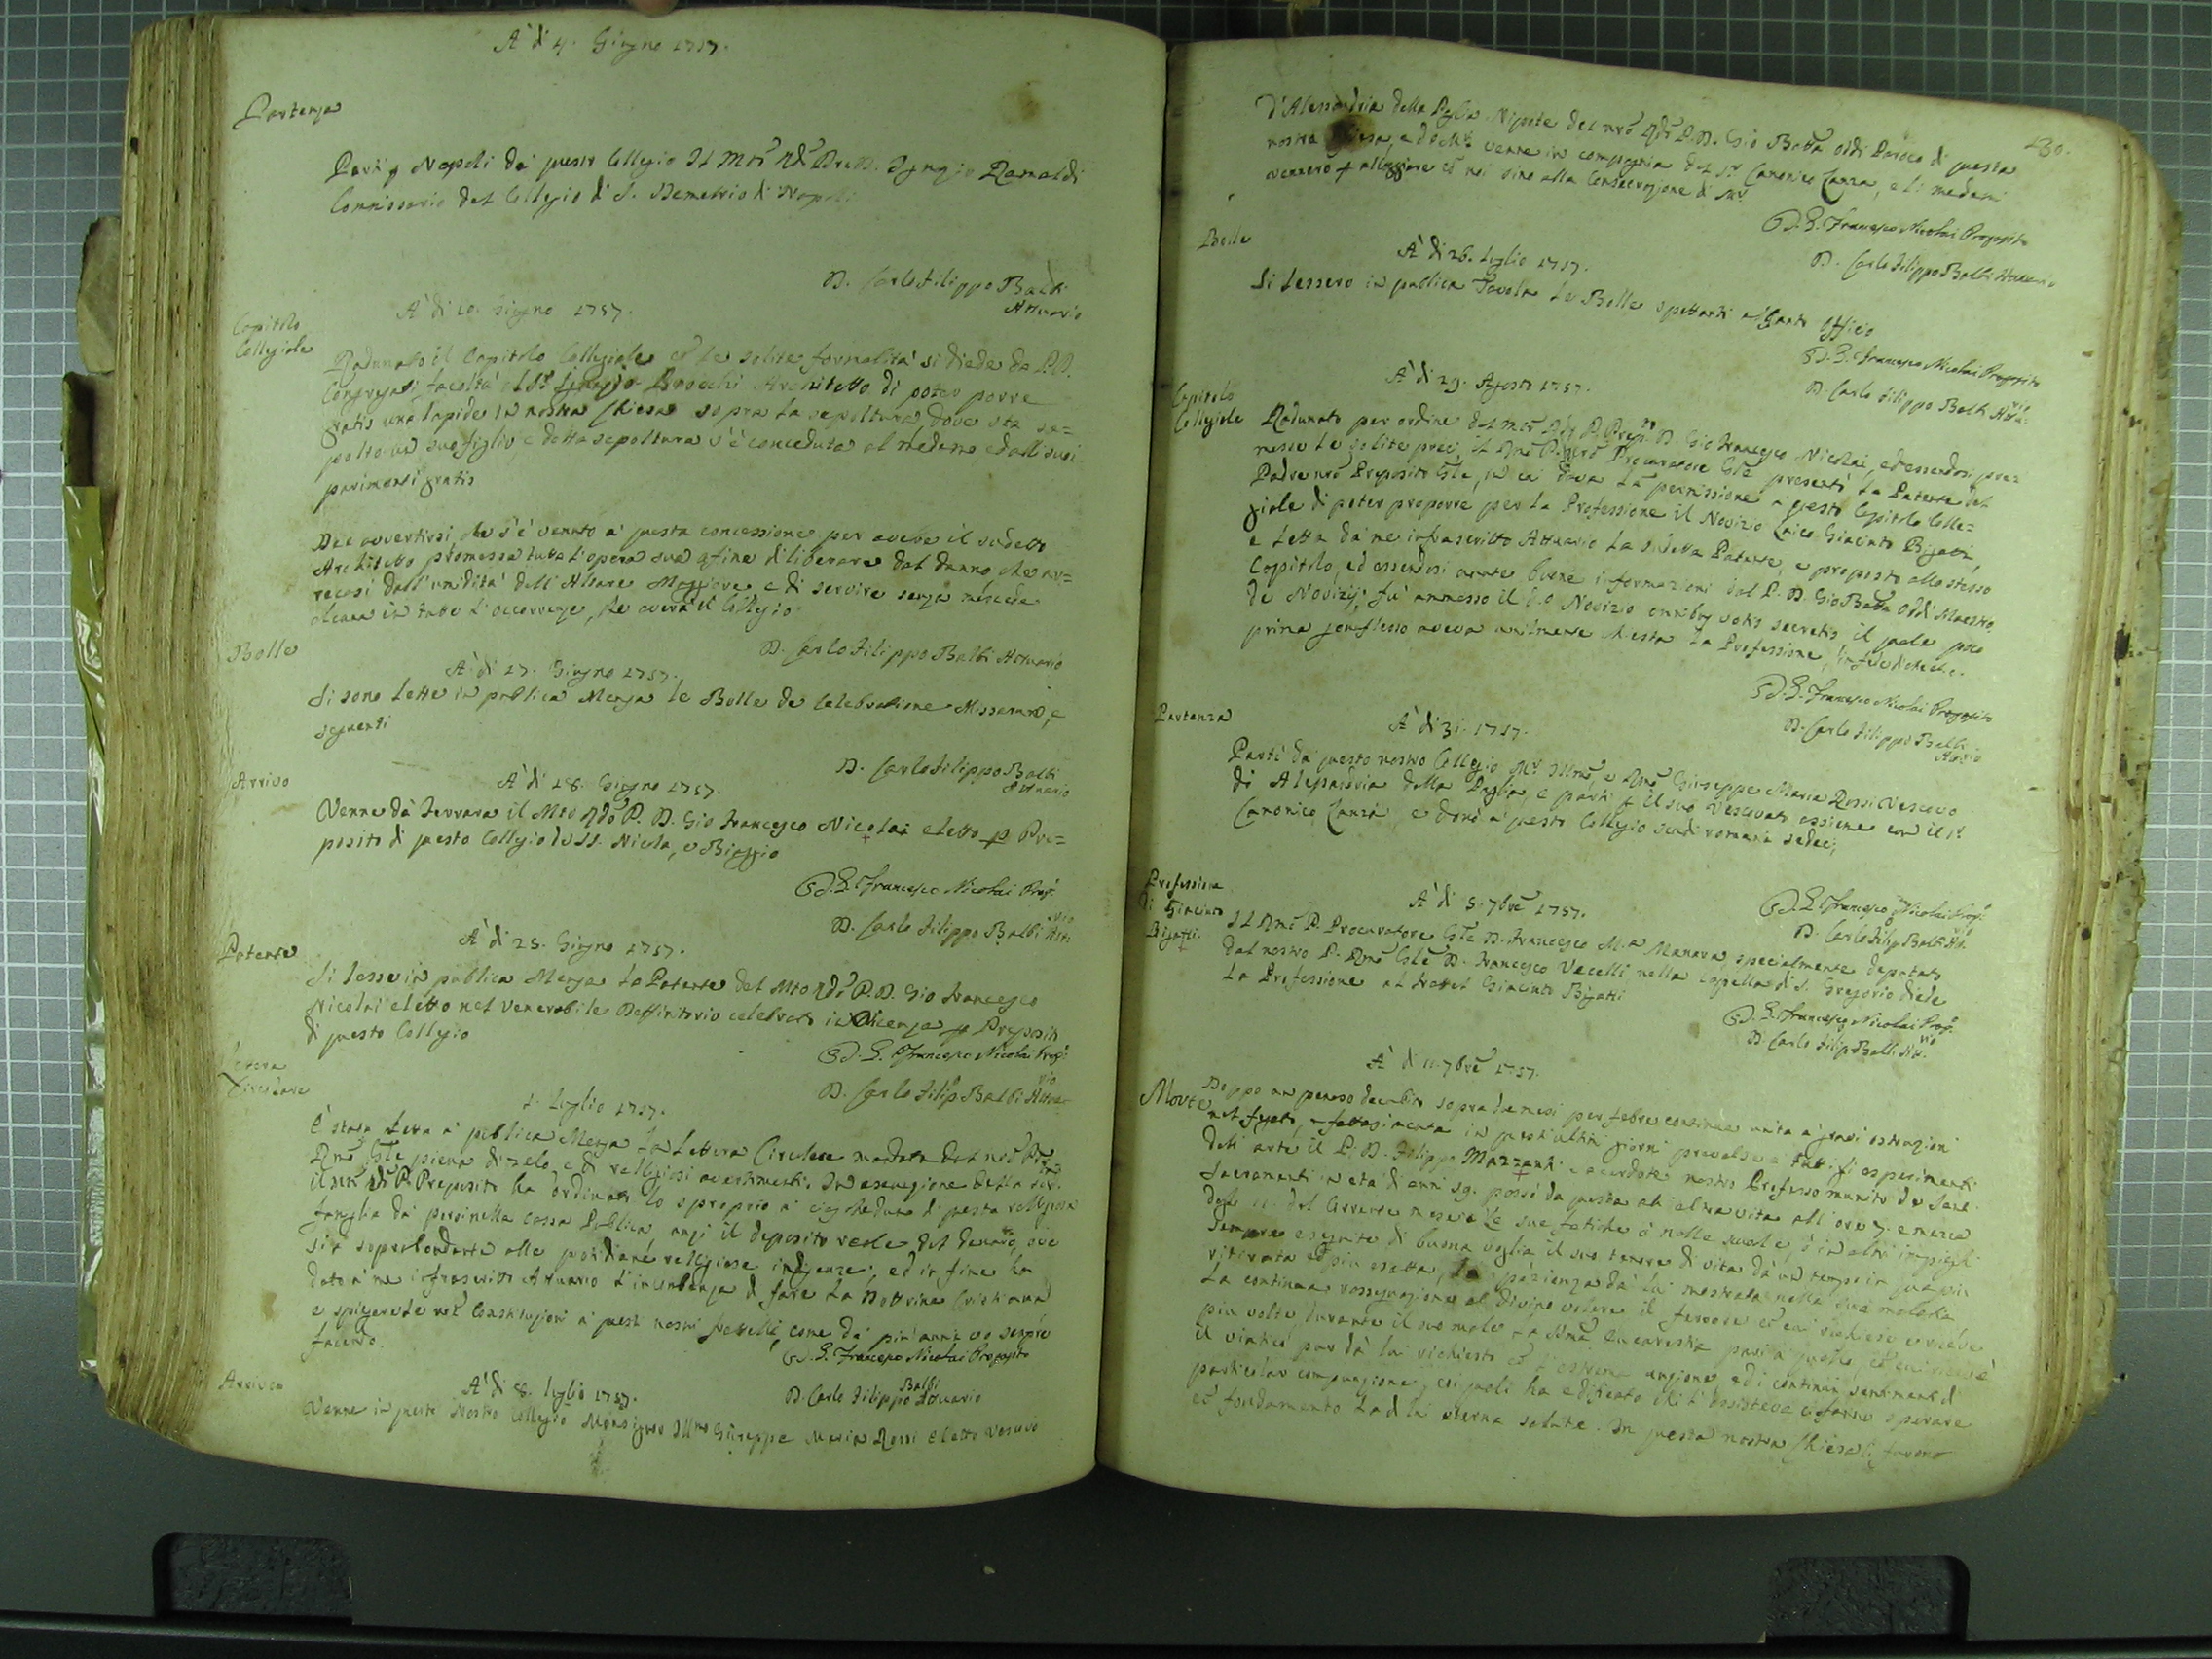 A' di 4. Giugno 1757.
Partenza
Partì p Napoli da questo Collegio Il Mto Rdo Pre D. Ignazio Ramaldi
Commissario del Collegio di S. Demetrio di Napoli
D. Carlo Filippo Balbi
Attuario
A' di 10. Giugno 1757.
Capitolo
Collegiale
Radunato il Capitolo Collegiale co le solite formalita' si diede da P.P.
Congregati facolta' al Sr Brocchi Architetto di poter porre
gratis una lapide in nostra Chiesa sopra la sepoltura, dove sta se=
polto un suo figlio, e detta sepoltura s'è conceduta al medemo, ed alli suoi
parimenti gratis
Dee avvertirsi che s'è venuto a' questa concessione per avere il sudetto
Architetto promessa tutta l'opera sua affine di liberare dal danno che ar=
recasi dall'umidita' dell'Altare Maggiore, e di servire senza mercede
alcuna in tutte l'occorrenze, che averà il Collegio
D. Carlo Filippo Balbi Attuario
Bolle
A' di 17. Giugno 1757.
Si sono lette in publica Mensa le Bolle de Celebratione Missarum, e
seguenti
D. Carlo Filippo Balbi
Attuario
Arrivo
A' di 18. Giugno 1757.
Venne da Ferrara il Mto Rdo P. D. Gio Francesco Nicolai eletto p Pre=
posito di questo Collegio de SS. Nicola, e Biaggio
D. G. Francesco Nicolai Prep.
D. Carlo Filippo Balbi Att.
Patente
A' di 25. Giugno 1757.
Si lesse in publica Mensa la Patente del Mto Rdo P. D. Gio Francesco
Nicolai eletto nel venerabile Deffinitorio celebrato in p Preposito
di questo Collegio
D. G. Francesco Nicolai Prep.
D. Carlo Filip Balbi Attua.
Circolare
1. Luglio 1757.
È stata letta a' publica Mensa la Lettera Circolare mandata dal nro Pre
Rmo Gnle piena di zelo, e di religiosi avertimenti. In esecuzione della
il P. Preposito ha ordinato lo sproprio a' ciascheduno di questa religiosa
famiglia da porsi nella cassa Publica, anzi il deposito reale del denaro, ove
sia soprabondante alle quotidiane religiose indigenze; ed in fine ha
dato a' me infrascritto Attuario l'incumbenza di fare la Dottrina Cristiana
e spiegare le nre Constituzioni a' questi nostri fratelli, come da piu' anni vo sempre
facendo.
D. G. Francesco Nicolai Preposito
D. Carlo Filippo Balbi Attuario
Arrivo
A' di 8. luglio 1757.
Venne in questo Nostro Collegio Monsignor Illmo Giuseppe Maria Rossi eletto Vescovo
130.
d'Alessandria della Paglia Nipote del nro Rdo P. D. Gio Batta Oddi Paroco di questa
nostra Chiesa, venne in compagnia del Sr Canonico Canza, e li medemi
vennero p alloggiare co noi sino alla Consecrazione di
D. G. Francesco Nicolai Preposito
D. Carlo Filippo Balbi Attuario
Bolle
A' di 26. Luglio 1757.
Si lessero in publica Tavola le Bolle spettanti al Santo Officio
D. G. Francesco Nicolai Preposito
D. Carlo Filippo Balbi Att.
Capitolo
Collegiale
A' di 29. Agosto 1757.
Radunato per ordine del Mto Rdo P. Prep. D. Gio Francesco Nicolai, ed essendosi pre=
messe le solite preci, il Rmo P. nro Procuratore Gnle presentò la Patente del
Padre nro Preposito Gnle, in cui dava la permissione a' questo Capitolo Colle=
giale di poter proporre per la Professione il Novizio Laico Giacinto Bigatti,
e letta da me infrascritto Attuario la sudetta Patente, e proposto allo stesso
Capitolo, ed essendosi avute buone informazioni dal P. D. Gio Batta Oddi Maestro
de Novizij, fu' ammesso il Novizio omnibus votis secretis il quale poco
prima genuflesso aveva umilmente chiesta la Professione, in fede di che &c.
D. G. Francesco Nicolai Preposito
D. Carlo Filippo Balbi
Attuario
Partenza
A' di 31. 1757.
Partì da questo nostro Collegio Mr Illmo, e Rmo Giuseppe Maria Rossi Vescovo
di Alessandria della Paglia, e partì p il suo Vescovato assieme con il Sr
Canonico Canza, e donò a' questo Collegio scudi romani sedeci
D. G. Francesco Nicolai Prep.
D. Carlo Filip Balbi Att.
Professione
di Giacinto
Bigatti.
A' di 5. 7bre 1757.
Il Rmo P. Procuratore Gnle D. Francesco M.a Manara specialmente deputato
dal nostro P. Rmo Gnle D. Francesco Vecelli nella Capella di S. Gregorio diede
la Professione al fratel Giacinto Bigatti
D. G. Francesco Nicolai Prep.
D. Carlo Filip Balbi Att.
A' di 11. 7bre 1757.
Morte
Doppo un penoso decubito sopra tre mesi per febre continua unita a' gravi ostruzioni
nel fegato, e fattasi in questi ultimi giorni prevalse a' tutti gl'esperimenti
dell'arte il P. D. Filippo Mazzanti Sacerdote nostro Professo munito de Santi
Sacramenti in età di anni 59. passò da questa all'altra vita all'ore 7. e mezza
degli 11. del corrente mese. Le sue fatiche ò nelle scuole, ò in altri impieghi
sempre eseguite di buona voglia, il suo tenore di vita da un tempo in qua più
ritirata ed più esatta, la pazienza da lui mostrata nella sua malatia
la continua rassegnazione al Divino volere il fervore co cui richiese e ricevè
più volte durante il suo male la SSma Eucarestia
il viatico pur da lui richiesto co l'estrema unzione, ed i continui sentimenti di
particolar compunzione, coi quali ha edificato chi l'assisteva ci fanno sperare
co fondamento la di lui eterna salute. In questa nostra Chiesa li furono